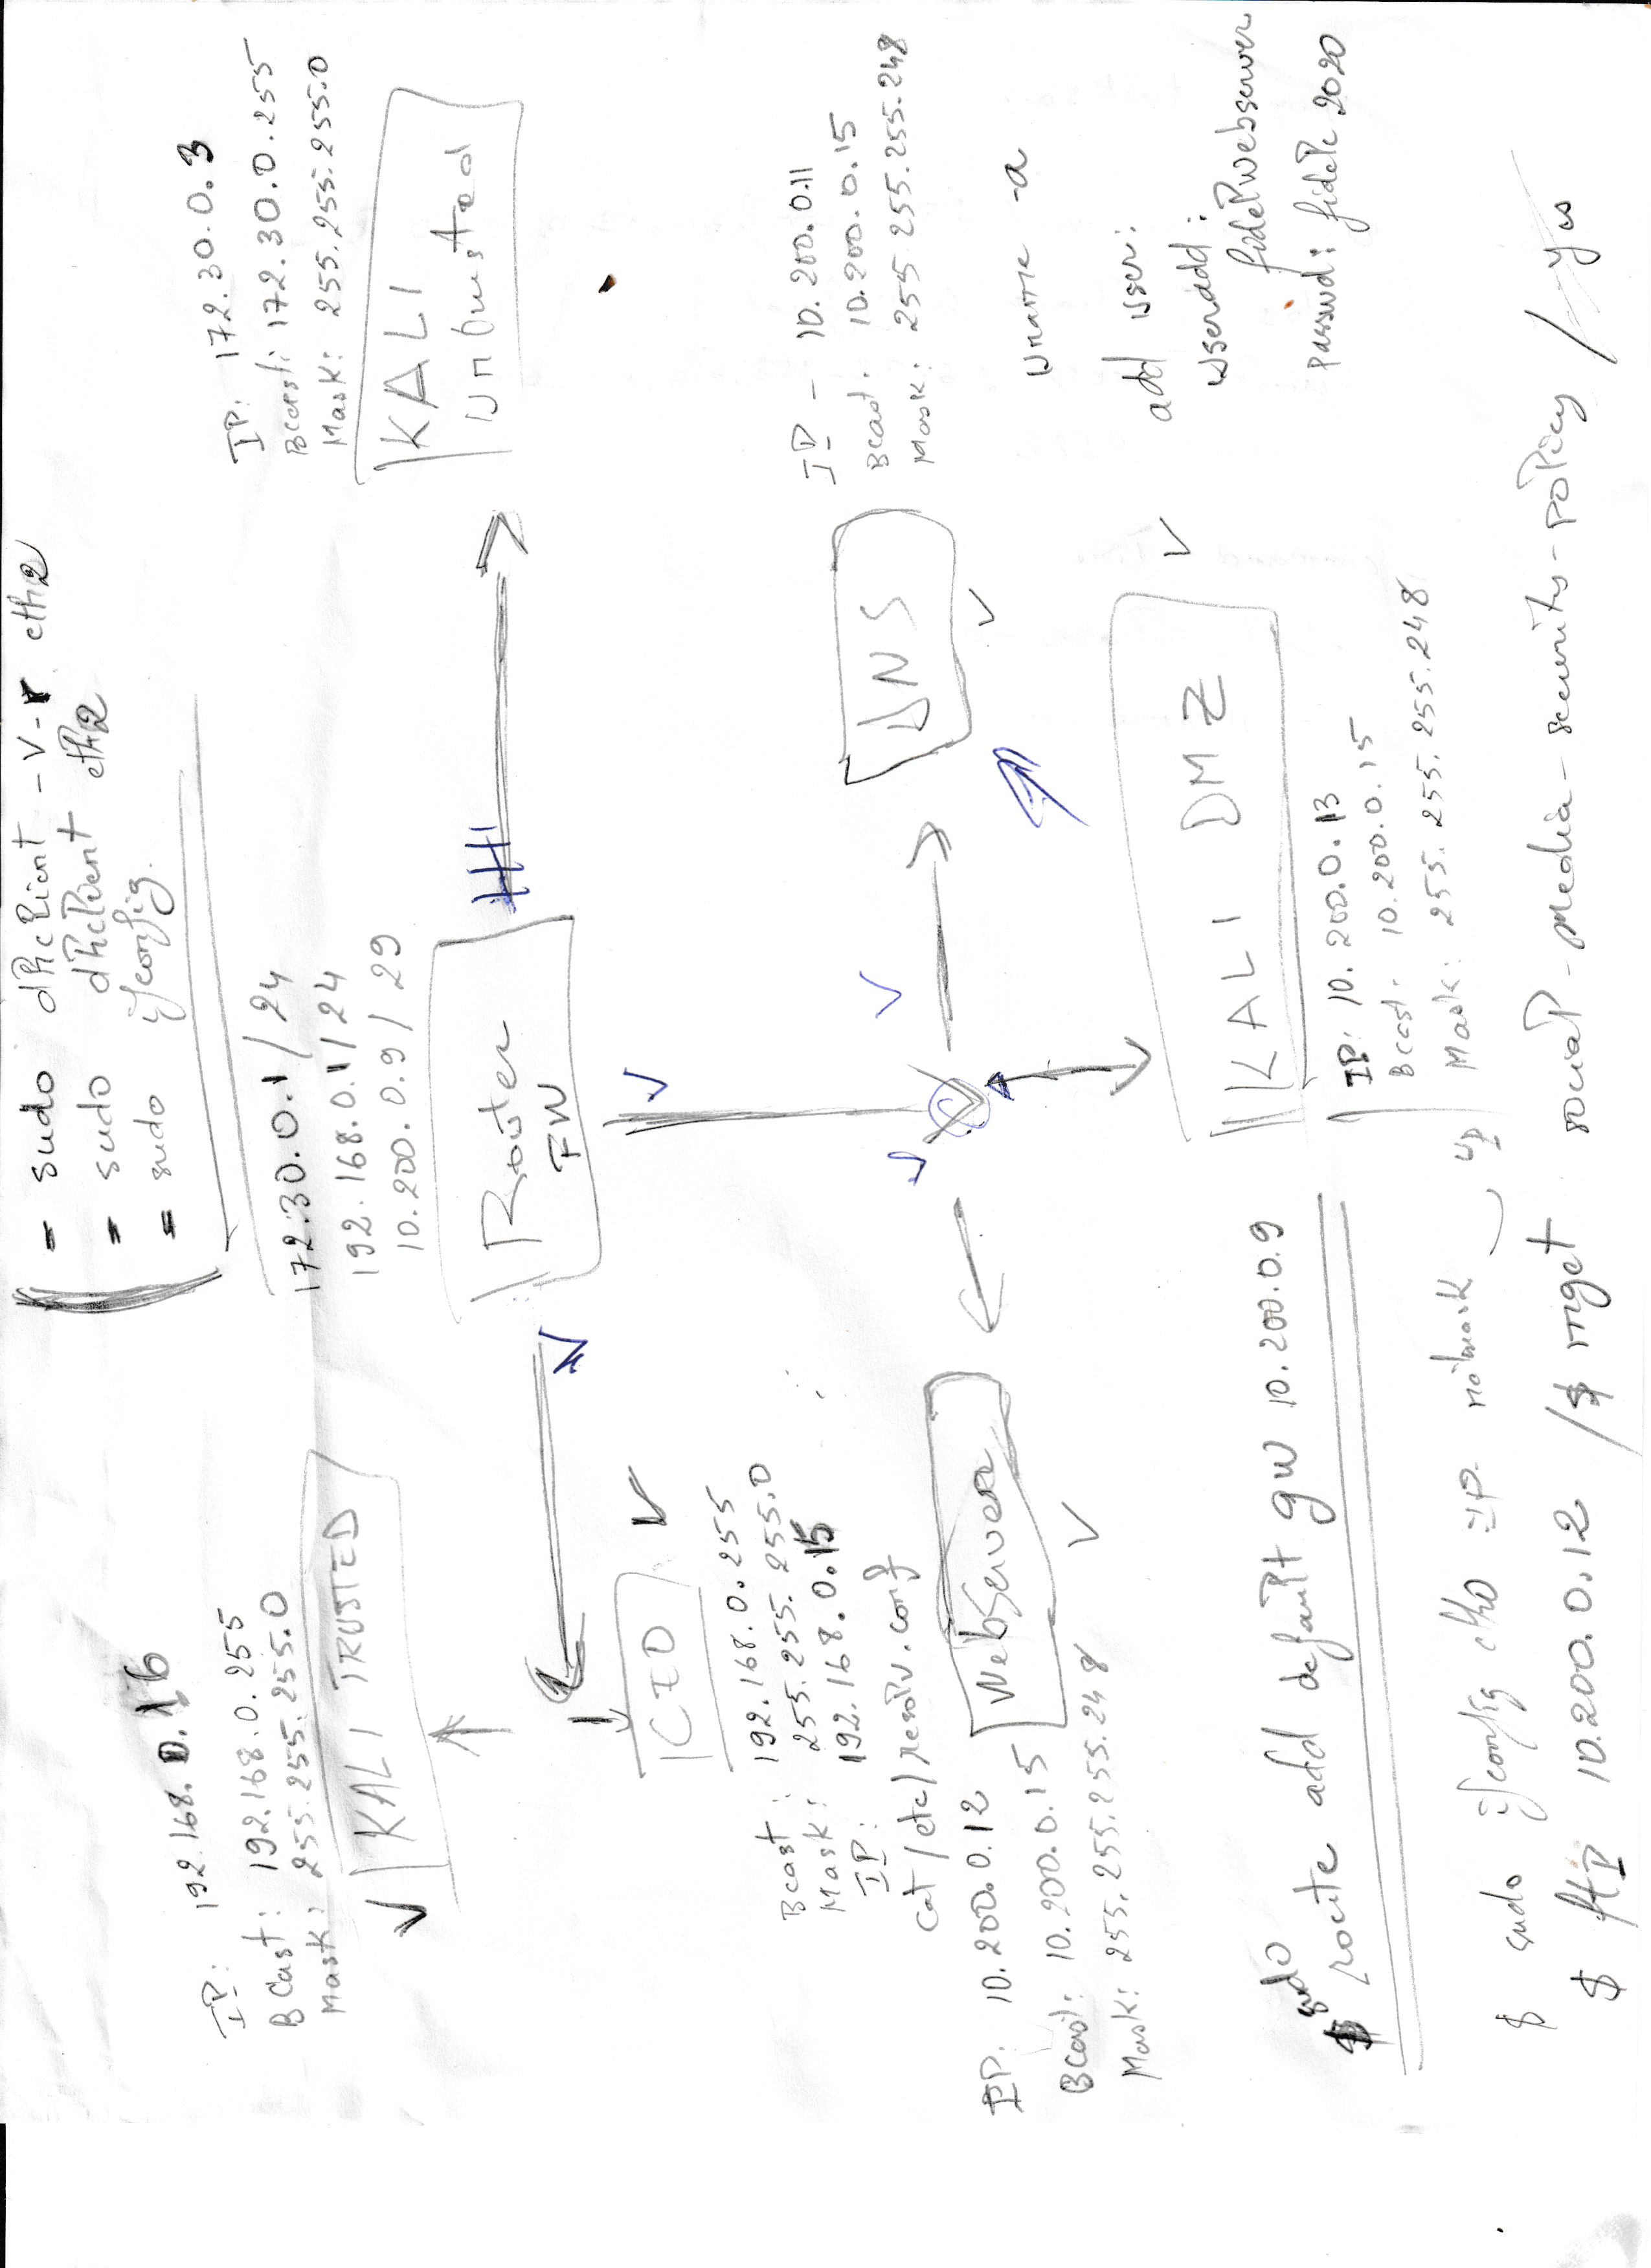 = sudo dhclient -v -r eth2
= sudo dhclient eth2
= sudo ifconfig.
IP: 192.168.0.16
BCast: 192.168.0.255
Mask: 255.255.255.0
KALI TRUSTED
172.30.0.1/24
192.168.0.1/24
10.200.0.9/29
Router
FW
IP: 172.30.0.3
Bcast: 172.30.0.255
Mask: 255.255.255.0
KALI
Untrusted
CEO
Bcast: 192.168.0.255
Mask: 255.255.255.0
IP: 192.168.0.15
cat /etc/resolv.conf
DNS
IP - 10.200.0.11
Bcast: 10.200.0.15
Mask: 255 255.255.248
IP. 10.200.0.12
Bcast: 10.200.0.15
Mask: 255.255.255.248
WebServer
uname -a
add user:
useradd:
fidelwebserver
passwd: fidele 2020
KALI DMZ
IP: 10.200.0.13
Bcast: 10.200.0.15
Mask: 255.255.255.248
$ sudo route add default gw 10.200.0.9
$ sudo ifconfig eth0 IP netmask up
$ ftp 10.200.0.12 /$ mget social-media-security-policy / yes